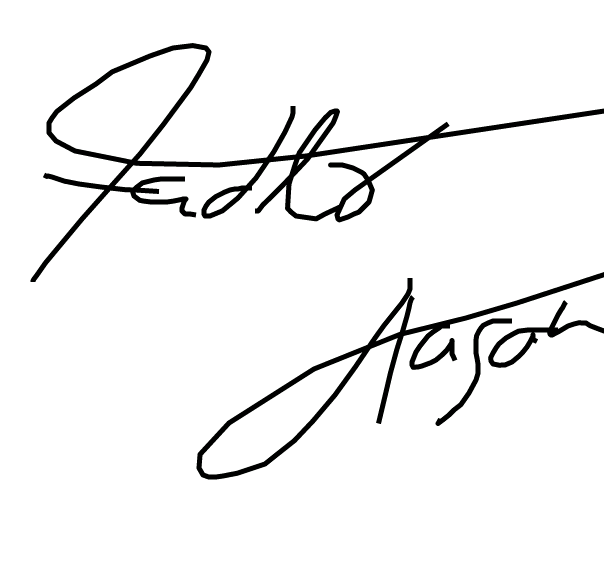 Fadlo
Hasan